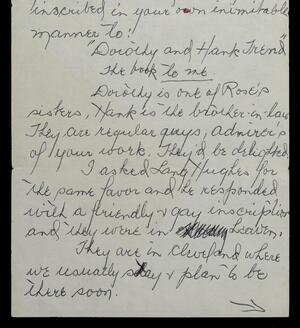 inscribed in your own inimitable
manner to:
"Dorothy and Hank Trend"
The book to me.
Dorothy is one of Rose's
sisters, Hank is the brother-in-law
They are regular guys, admirers
of your work. They'd be delighted
I asked Lang Hughes for
the same favor and he responded
with a friendly & gay inscription
and they were in heaven.
They are in Cleveland where
we usually stay & plan to be
there soon.